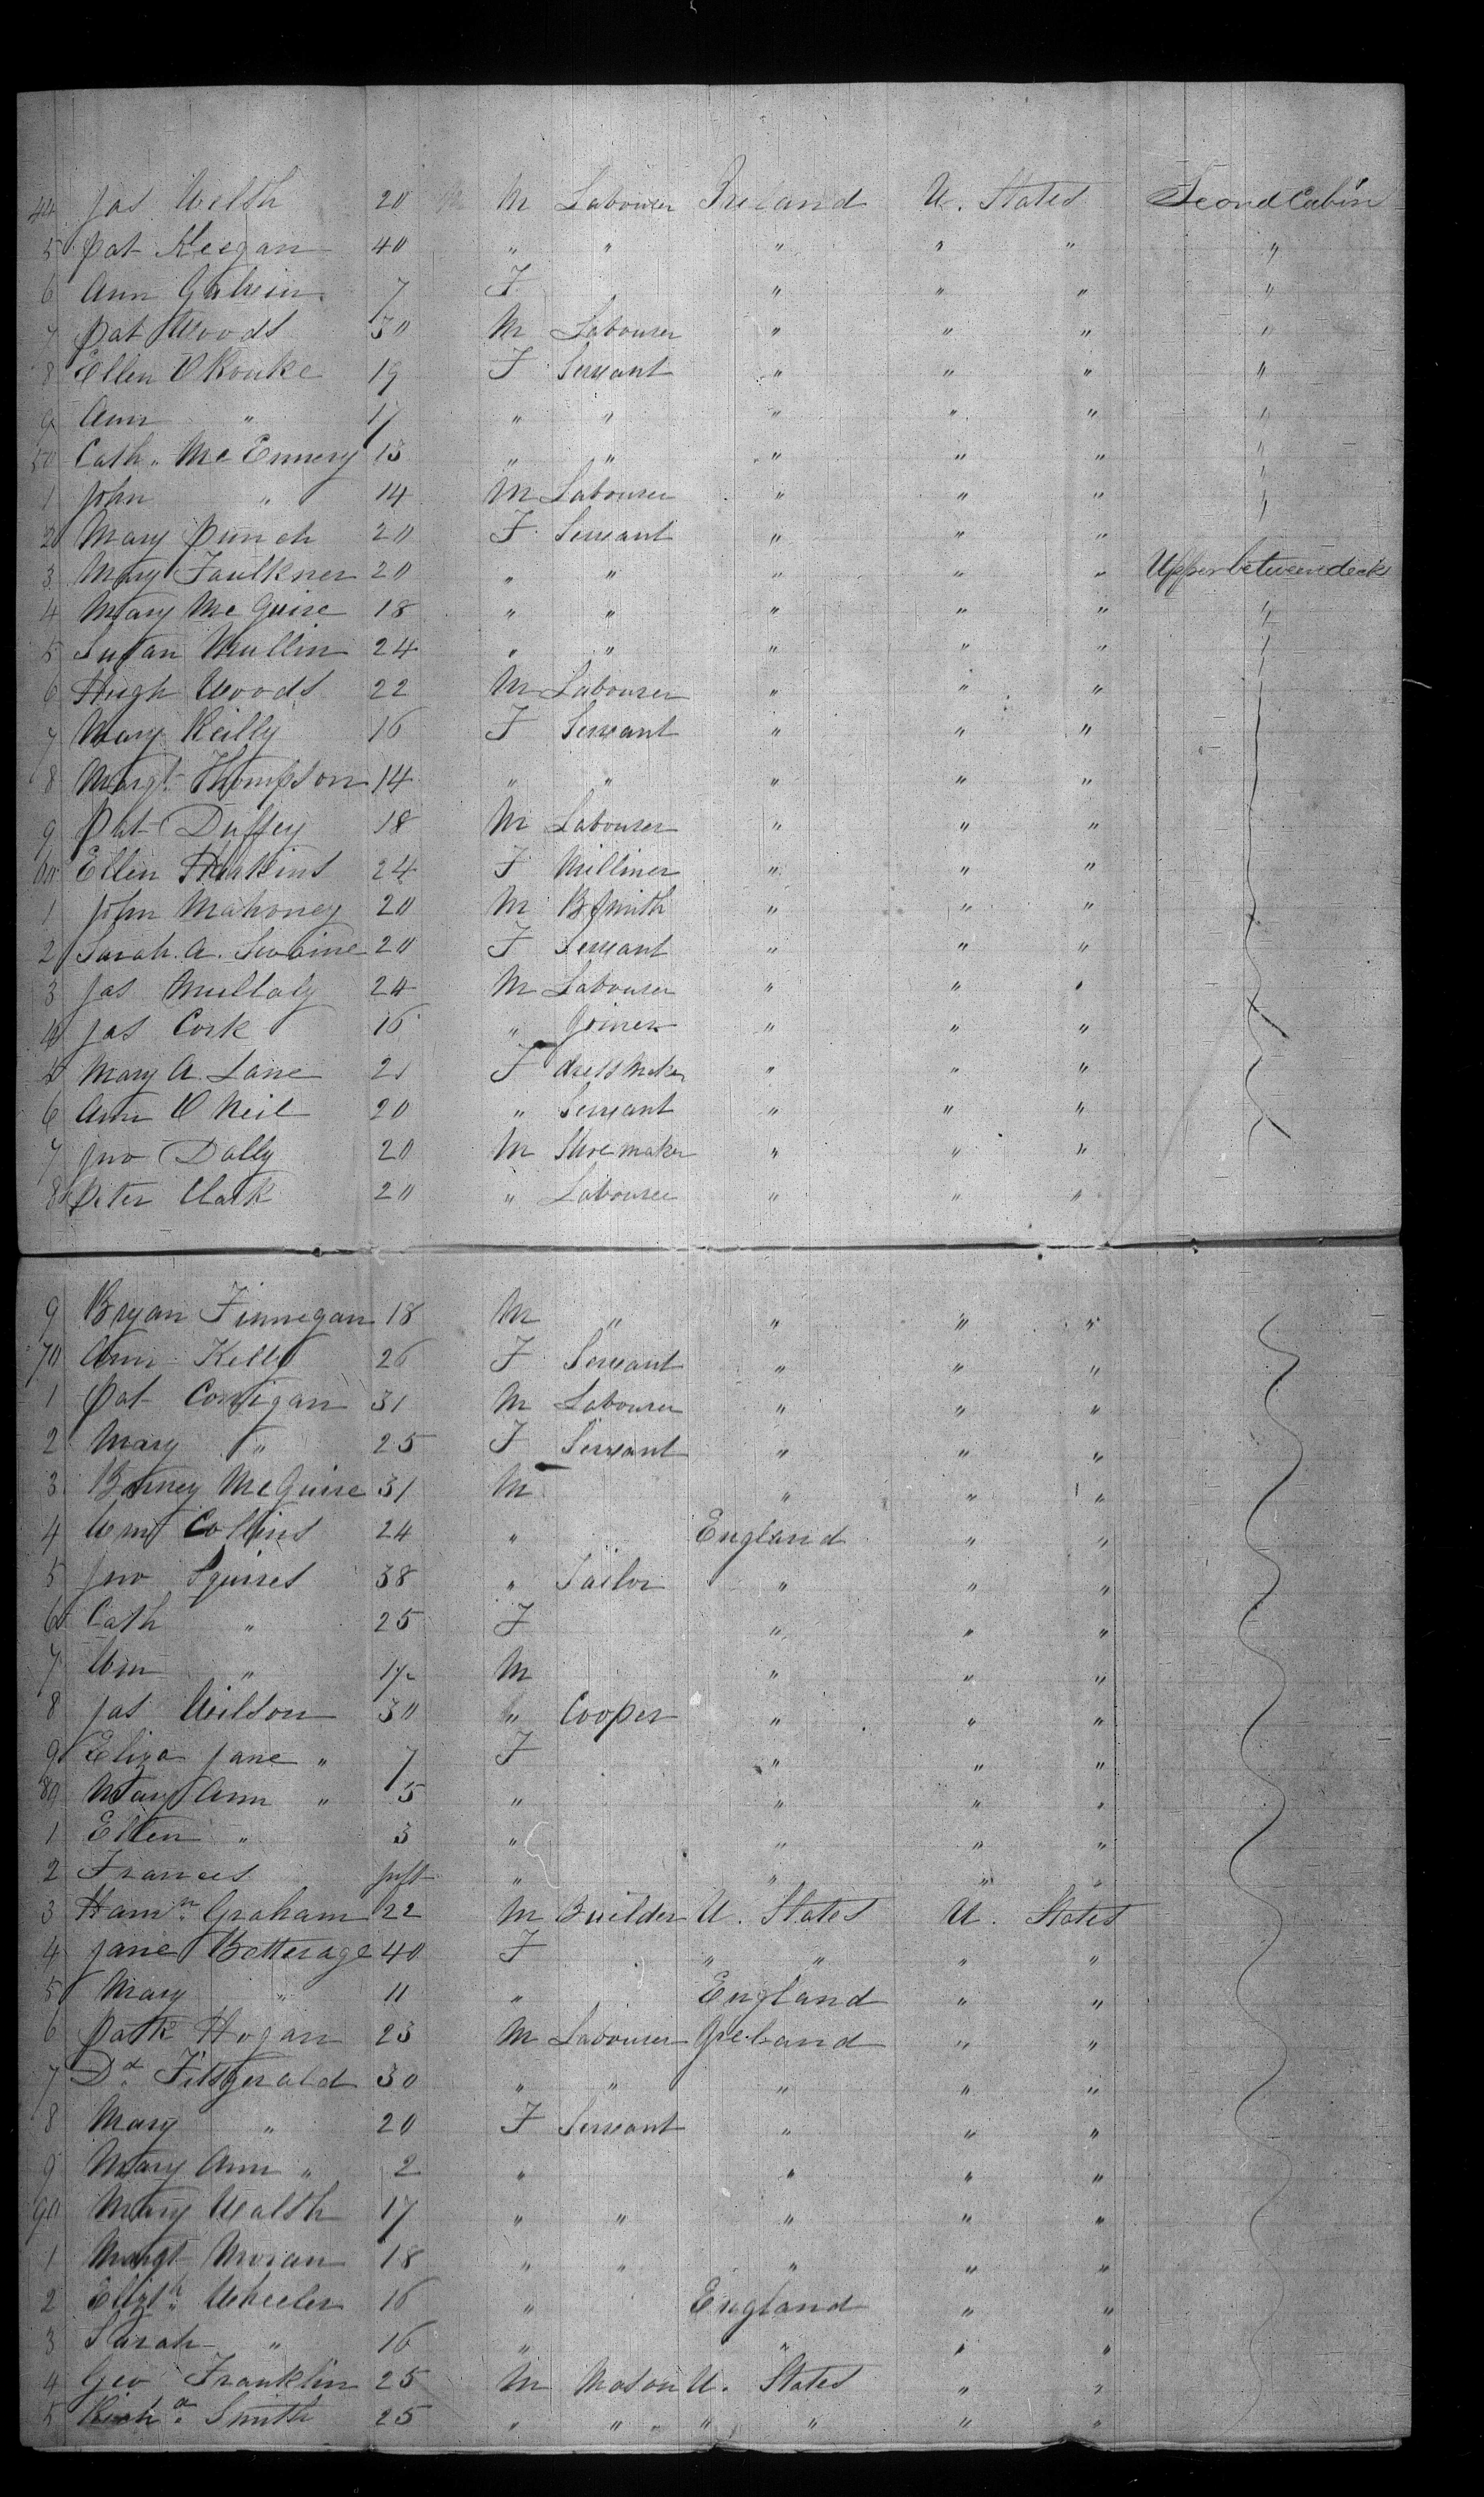 44 Jas Welsh 20 M Labourer Ireland U. States Second Cabin
5 Pat Keegan 40 " " " " " "
6 Ann 7 F " " " "
7 Pat Woods 30 M Labourer " " " "
8 Ellen O Rouke 19 F Servant " " " "
9 Ann " 17 " " " " " "
50 Cath. Mc Ennery 13 " " " " " "
1 John " 14 M Labourer " " " "
2 Mary Punch 20 F Servant " " "
3 Mary Faulkner 20 " " " " " Upper between decks
4 Mary Mc Guire 18 " " " " " "
5 Susan Mullin 24 " " " " " "
6 Hugh Woods 22 M Labourer " " "
7 Mary Reilly 16 F Servant " " "
8 Margt. Thompson 14 " " " " "
9 Pat Duffey 18 M Labourer " " "
60 Ellen Harkins 24 F Milliner " " "
1 John Mahoney 20 M B Smith " " "
2 Sarah. A. Swaine 20 F Servant " " "
3 Jas Mullaly 24 M Labourer " " "
4 Jas Cork 16 " Joiner " " "
5 Mary A. Lane 21 F dressmaker " " "
6 Ann O Neil 20 " Servant " " "
7 Jno Dally 20 M Shoemaker " " "
8 Peter Clark 20 " Labourer " " "
9 Bryan Finnegan 18 M " " " "
70 Ann Kelly 26 F Servant " " "
1 Pat Corrigan 31 M Labourer " " "
2 Mary " 25 F Servant " " "
3 Barney McGuire 31 M " " "
4 Wm Collins 24 " England " "
5 Jno Squires 38 " Tailor " " "
6 Cath " 25 F " " "
7 Wm " M " " "
8 Jas Wilson 30 " Cooper " " "
9 Eliza Jane " 7 F " " "
80 Mary Ann " 5 " " " "
1 Ellen " 3 " " " "
2 Frances Inft " " " "
3 Hamn. Graham 22 M Builder U. States U. States
4 Jane Betterage 40 F " " " "
5 Mary " 11 " England " "
6 Patk Hogan 23 M Labourer Ireland " "
7 Dd. Fitsgerald 30 " " " " "
8 Mary " 20 F Servant " " "
9 Mary Ann " 2 " " " "
90 Mary Walsh 17 " " " " "
1 Margt Moran 18 " " " " "
2 Elizth. Wheeler 16 " England " "
3 Sarah " 16 " " " "
4 Geo Franklin 25 M Mason U. States " "
5 Richd. Smith 25 " " " " " "